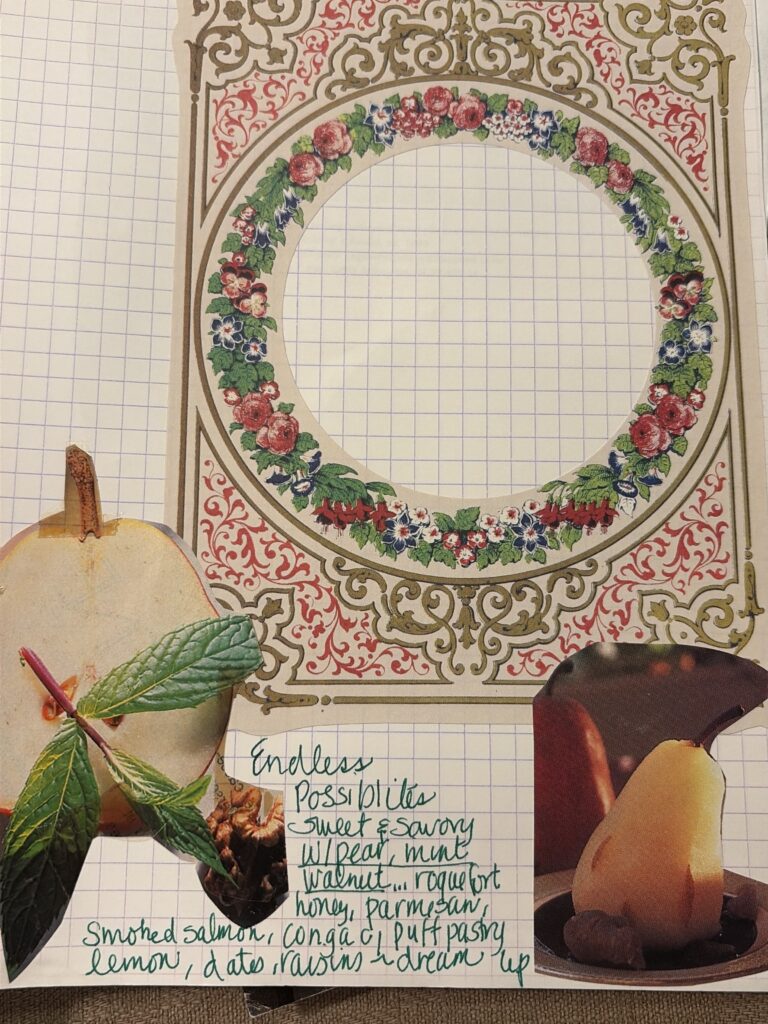 Endless
Possiblites
sweet & savory
w/pear, mint
walnut... roquefort
honey, parmesan,
smoked salmon, congac, puff pastry
lemon, dates, raisins ~ dream up